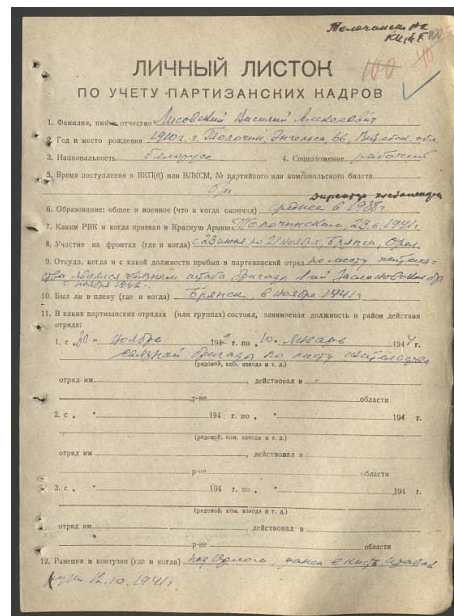 100
ЛИЧНЫЙ ЛИСТОК
ПО УЧЕТУ ПАРТИЗАНСКИХ КАДРОВ
1. Фамилия, имя, отчество Лисовский Василий Алексеевич
2. Год и место рождения 1910 г. г. Толочин, Энгельса, 66, Витебск. обл.
3. Национальность белорус 4. Соцположение рабочий
5. Время поступления в ВКП(б) или ВЛКСМ, № партийного или комсомольского билета.
б/п
6. Образование: общее и военное (что и когда окончил) среднее в 1938 г.
7. Каким РВК и когда призван в Красную Армию Толочинским, 23.6.1941 г.
8. Участие на фронтах (где и когда)
9. Откуда, когда и с какой должности прибыл в партизанский отряд по месту
10. Был ли в плену (где и когда) Брянск в ноябре 1941 г.
11. В каких партизанских отрядах (или группах) состоял, занимаемая должность и район действия
отряда:
1. с „20“ ноября 194 г. по 10. январь 1944 г.
связной бригады по месту
(рядовой, ком. взвода и т. д.)
отряд им. , действовал в
р-не области
2. с „ “ 194 г. по „ “ 194 г.
(рядовой, ком. взвода и т. д.)
отряд им , действовал в
р-не области
3. с „ “ 194 г. по „ “ 194 г.
(рядовой, ком. взвода и т. д.)
отряд им. , действовал в
р-не области
12. Ранения и контузии (где и когда) под Орлом,
руки 12.10.1941 г.